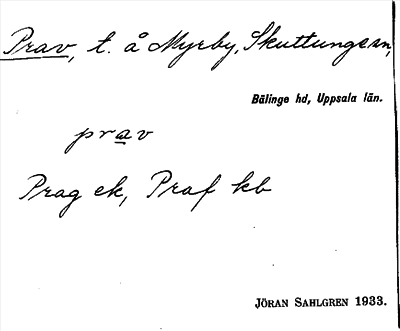 Prav, t. å Myrby, Skuttunge sn,
Bälinge hd, Uppsala län.
prav
Prag ek, Praf kb
JÖRAN SAHLGREN 1933.